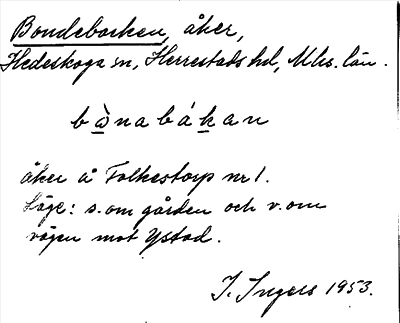 Bondebacken, åker,
Hedeskoga sn, Herrestads hd, Mhs. län.
bònabákan
åker å Folkestorp nr 1.
Läge: s. om gården och v. om
vägen mot Ystad.
I. Ingers 1953.